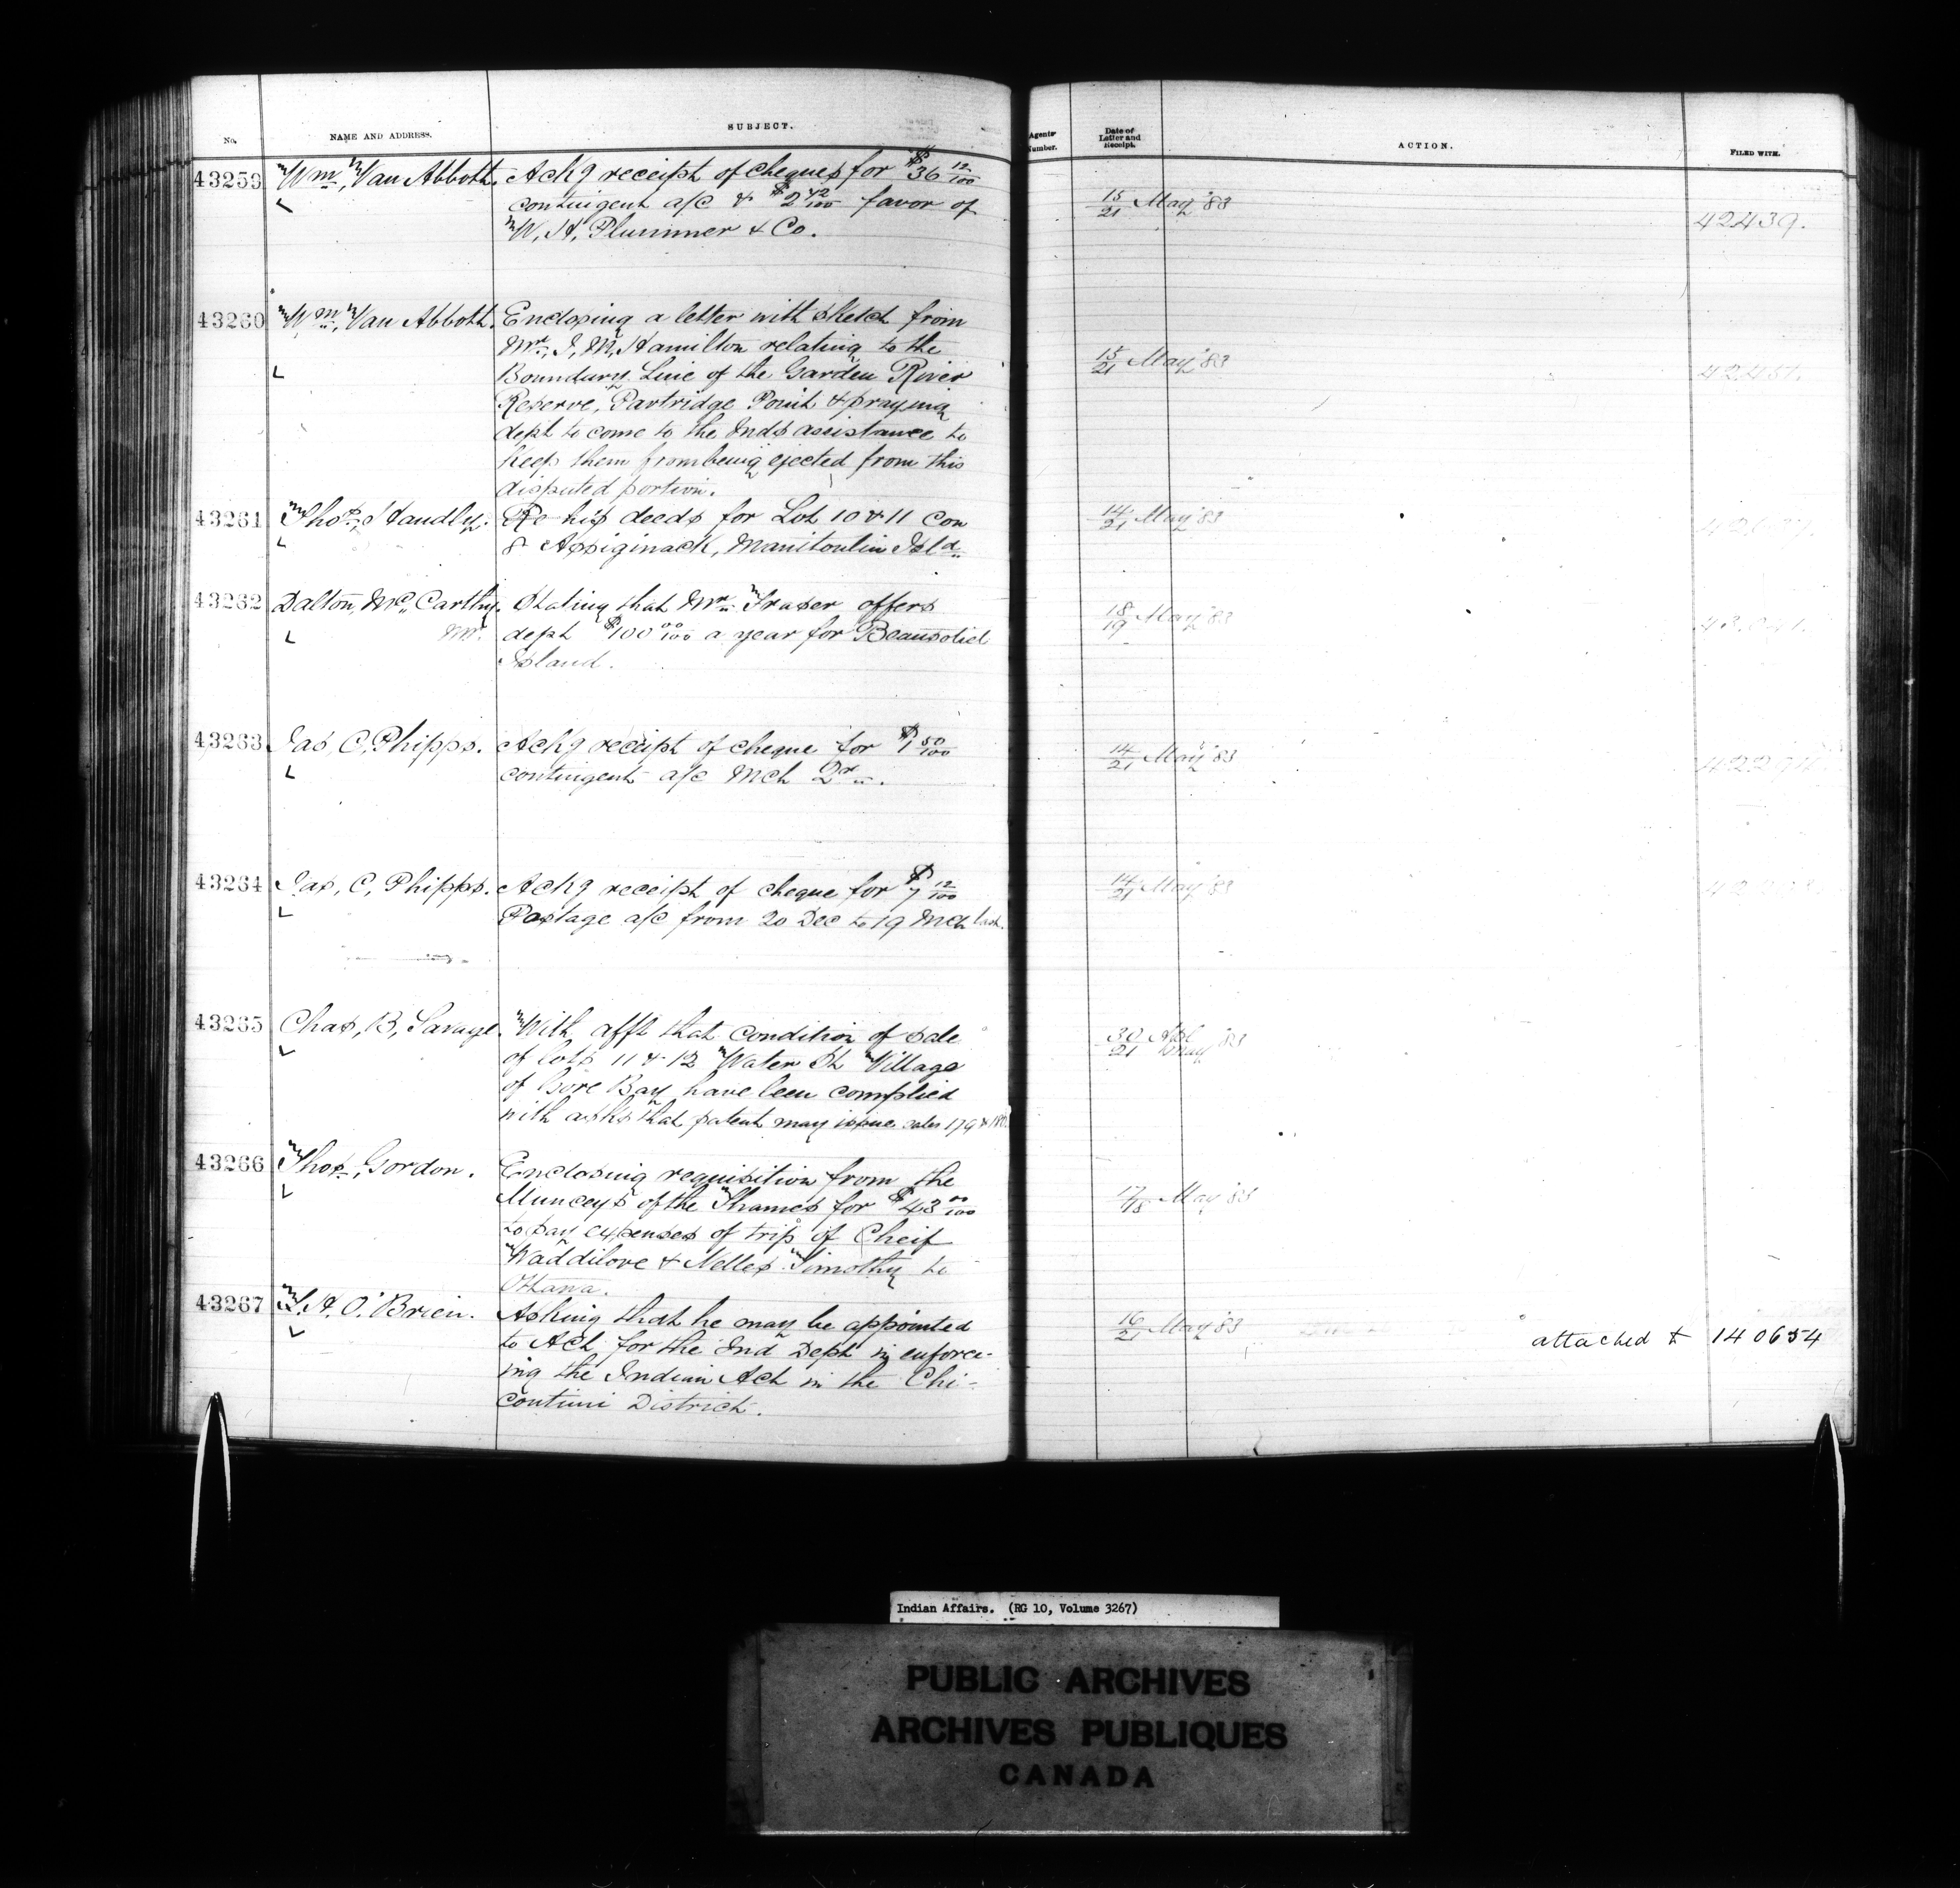 No. NAME AND ADDRESS. SUBJECT. Agents' Number. Date of Letter and Receipt. ACTION. FILED WITH.
43259 Wm, Van Abbott. Ackg receipt of cheques for $36 12/100
contingent a/c & $2 42/100 favor of 15/21 May '83
W, H, Plummer & Co. 42439.
43260 Wm, Van Abbott. Enclosing a letter with sketch from
Mr, J, M, Hamilton relating to the
Boundary Line of the Garden River 15/21 May '83
Reserve, Partridge Point & praying
dept to come to the Inds assistance to
keep them from being ejected from this
disputed portion.
43261 Thos, Handly. Re his deeds for Lot 10 & 11 Con 14/21 May '83
8 Assiginack, Manitoulin Isld.
43262 Dalton, Mc, Carthy. Stating that Mr. Fraser offers
Mr. dept $100 00/100 a year for Beausoliel 18/19 May '83
Island.
43263 Jas, C, Phipps. Ackg receipt of cheque for $1 50/100
contingent a/c Mch Qr. 14/21 May '83
43264 Jas, C, Phipps. Ackg receipt of cheque for $7 12/100 14/21 May '83
Postage a/c from 20 Dec to 19 Mch last.
43265 Chas, B, Savage. With afft that condition of sale 30 Apl / 21 May '83
of lots 11 & 12 Water St Village
of Gore Bay have been complied
with asks that patent may issue sales 179 & 180
43266 Thos, Gordon. Enclosing requisition from the
Munceys of the Thames for $43 00/100 17/18 May '83
to pay expenses of trip of Cheif
Waddilove & Nelles Timothy to
Ottawa.
43267 L. H. O'Brien. Asking that he may be appointed 16/21 May '83
to Act for the Ind Dept in enforc- attached t 140654
ing the Indian Act in the Chi-
coutimi District.
Indian Affairs. (RG 10, Volume 3267)
PUBLIC ARCHIVES
ARCHIVES PUBLIQUES
CANADA